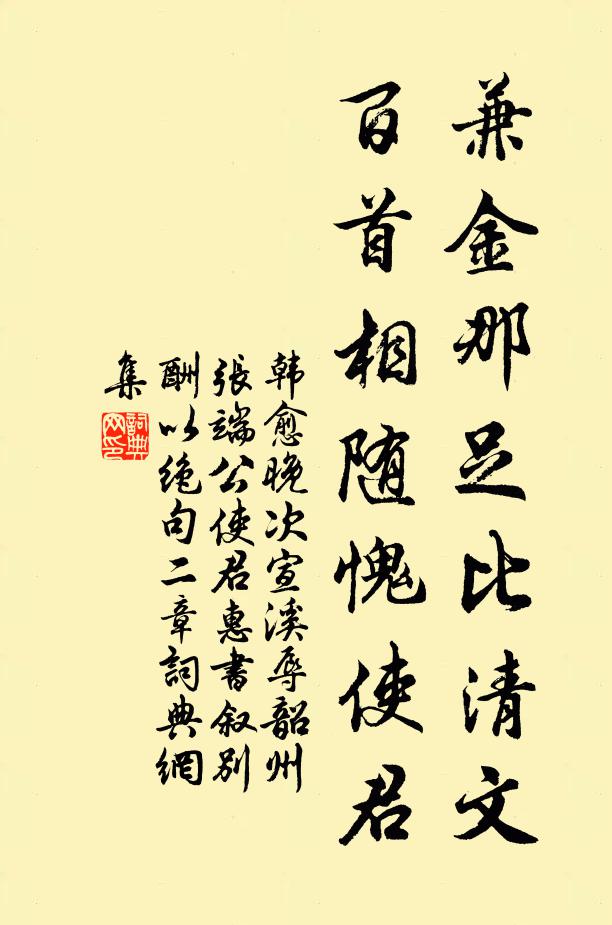 兼金那足比清文
百首相随愧使君
韩愈晚次宣溪辱韶州
張端公使君惠書叙别
酬以绝句二章詞典網
集
詞典
网印